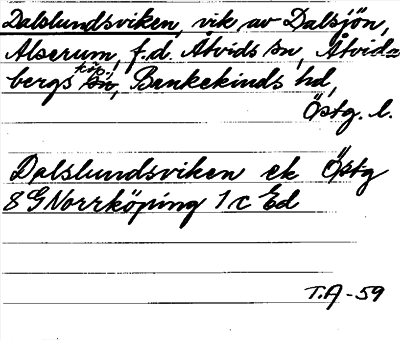 Dalslundsviken, vik av Dalsjön,
Alserum, f.d. Åtvids sn, Åtvida-
bergs köp., Bankekinds hd,
Östg. l.
Dalslundsviken ek Östg
8 G Norrköping 1 c Ed
T.A-59